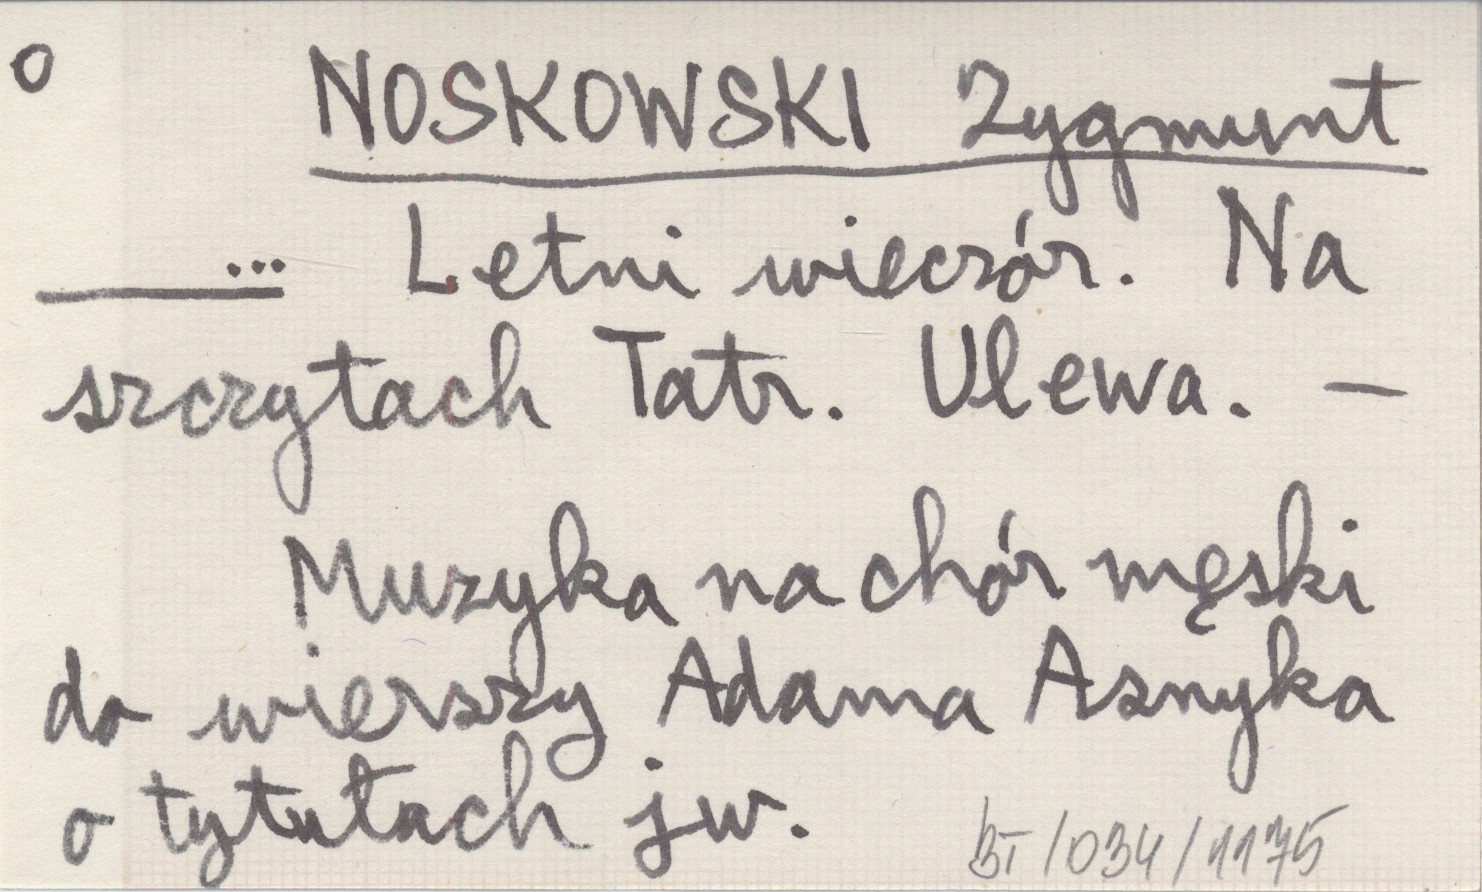 o NOSKOWSKI Zygmunt
... Letni wieczór. Na
szczytach Tatr. Ulewa. —
Muzyka na chór męski
do wierszy Adama Asnyka
o tytułach jw.
BT/034/1175